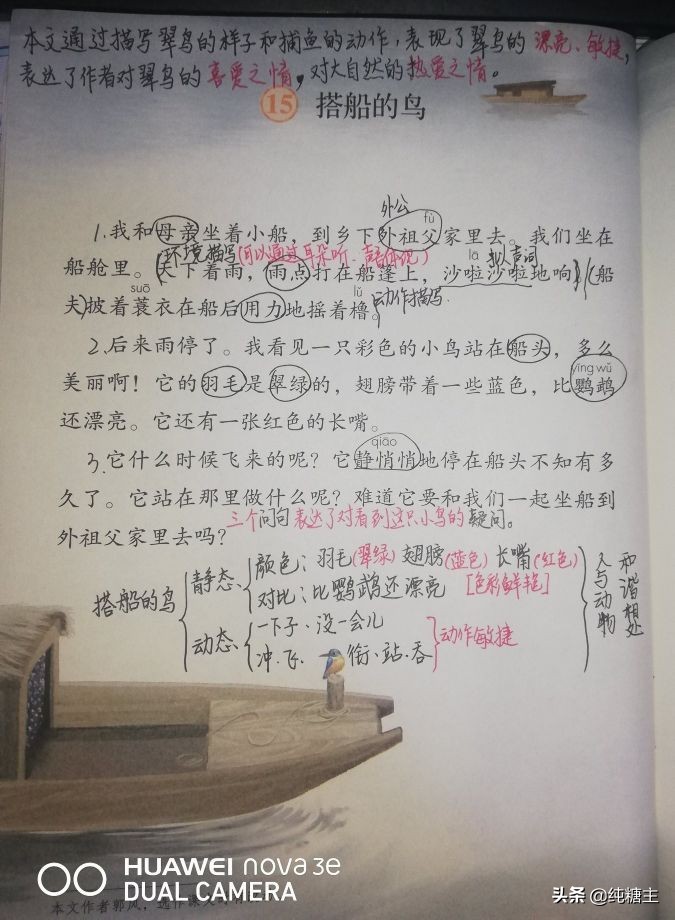 本文通过描写翠鸟的样子和捕鱼的动作，表现了翠鸟的漂亮、敏捷，
表达了作者对翠鸟的喜爱之情，对大自然的热爱之情。
15 搭船的鸟
外公
fù
1.我和母亲坐着小船，到乡下外祖父家里去。我们坐在
环境描写(可以通过耳朵听、声音体现) lā 拟声词
船舱里。天下着雨，雨点打在船篷上，沙啦沙啦地响。船
suō lǔ 动作描写
夫披着蓑衣在船后用力地摇着橹。
2.后来雨停了。我看见一只彩色的小鸟站在船头，多么
yīng wǔ
美丽啊！它的羽毛是翠绿的，翅膀带着一些蓝色，比鹦鹉
还漂亮。它还有一张红色的长嘴。
qiāo
3.它什么时候飞来的呢？它静悄悄地停在船头不知有多
久了。它站在那里做什么呢？难道它要和我们一起坐船到
三个问句表达了对看到这只小鸟的疑问。
外祖父家里去吗？
搭船的鸟
静态
颜色：羽毛(翠绿) 翅膀(蓝色) 长嘴(红色)
对比：比鹦鹉还漂亮 [色彩鲜艳]
动态
一下子、没一会儿
冲、飞、衔、站、吞
动作敏捷
人与动物
和谐相处
HUAWEI nova 3e
DUAL CAMERA
本文作者郭风，选作课文时
头条 @纯糖主